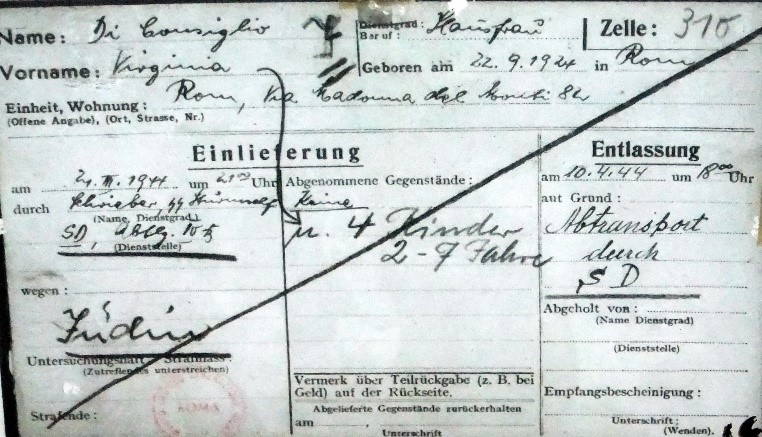 Name: Di Consiglio
Dienstgrad:
Beruf: Hausfrau
Zelle: 310
Vorname: Virginia
Geboren am 22.9.1924 in Rom
Einheit, Wohnung: Rom, Via Madonna dei Monti 82
(Offene Angabe), (Ort, Strasse, Nr.)
Einlieferung
am 21.III.1944 um 21⁰⁰ Uhr
durch Schreiber, SS
(Name, Dienstgrad)
SD, Abtlg.
(Dienststelle)
Abgenommene Gegenstände:
Keine
u. 4 Kinder
2-7 Jahre
wegen:
Jüdin
Untersuchungshaft - Strafhaft
(Zutreffendes unterstreichen)
Strafende:
ROMA
Vermerk über Teilrückgabe (z. B. bei
Geld) auf der Rückseite.
Abgelieferte Gegenstände zurückerhalten
am ,
Unterschrift
Entlassung
am 10.4.44 um 18⁰⁰ Uhr
aut Grund:
Abtransport
durch
SD
Abgeholt von:
(Name Dienstgrad)
(Dienststelle)
Empfangsbescheinigung:
Unterschrift;
(Wenden).